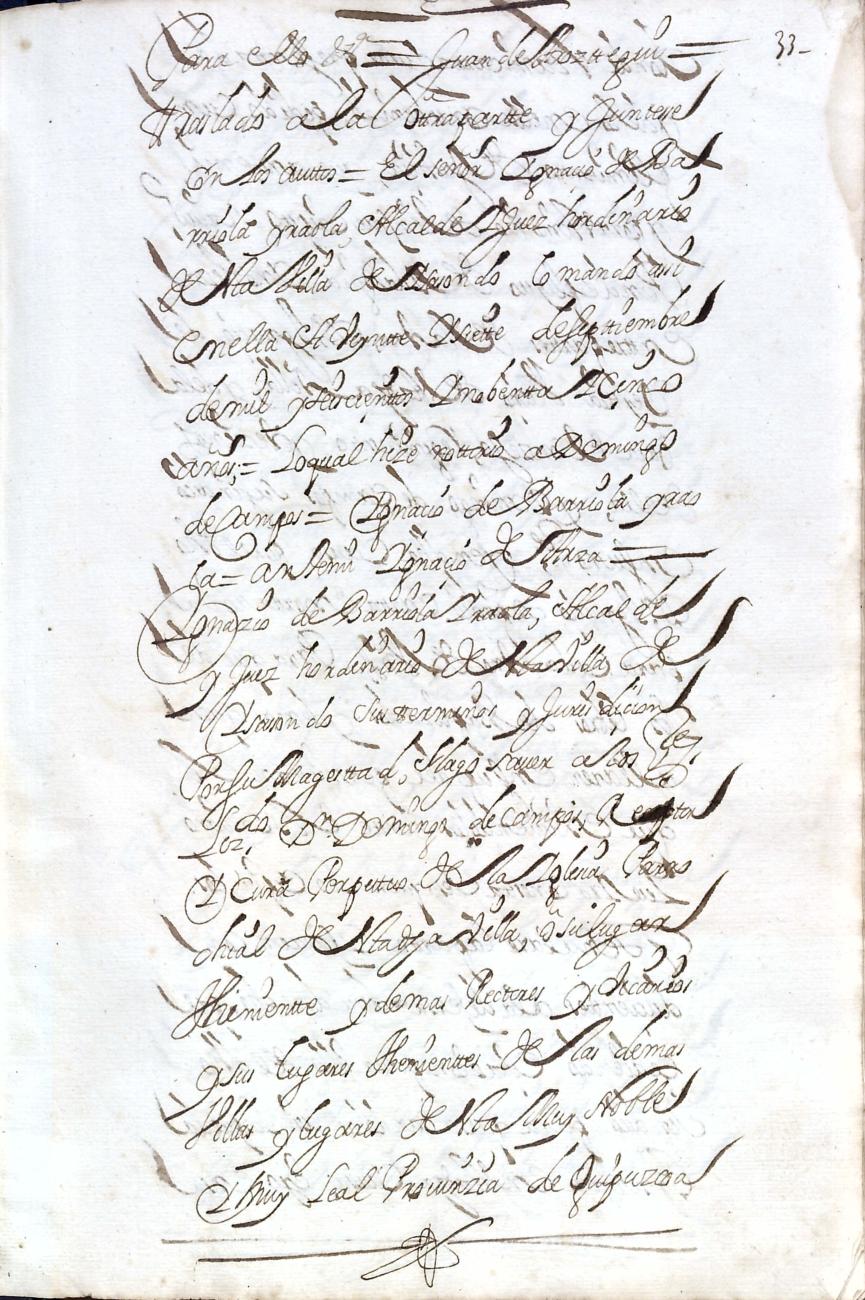 33-
Para ello &ª = Juan de Yrozttegui =
Traslado a la Conttrapartte y Junttese
Con los auttos = El señor Ygnacio de Ba
rriola yraola, Alcalde Y Juez hordinario
de estta Villa de Usson do lo mando assi
en ella A Veyntte Y siette de Septtiembre
de mil y seiscienttos Y nobentta Y Cinco
años; = Lo qual hize nottorio a Domingo
de Campos = Ygnacio de Barriola yrao
la = antemi Ygnacio de Arza =
Ygnazio de Barriola Yraola, Alcalde
y Juez hordinario de estta Villa de
Usson do sus tterminos y Jurisdicion
Por su Magesttad, Hago saver a los Sez.
Lizdo. Dn. Domingo de Campos, Rector
Y Cura Perpettuo de la Yglesia Parro
chial de estta dha Villa, o su lugar
Theniente y demas Rectores y Vicarios
y sus lugares Thenienttes de las demas
Villas y lugares de estta Muy Noble
Y Muy Leal Provinzia de Guipuzcoa